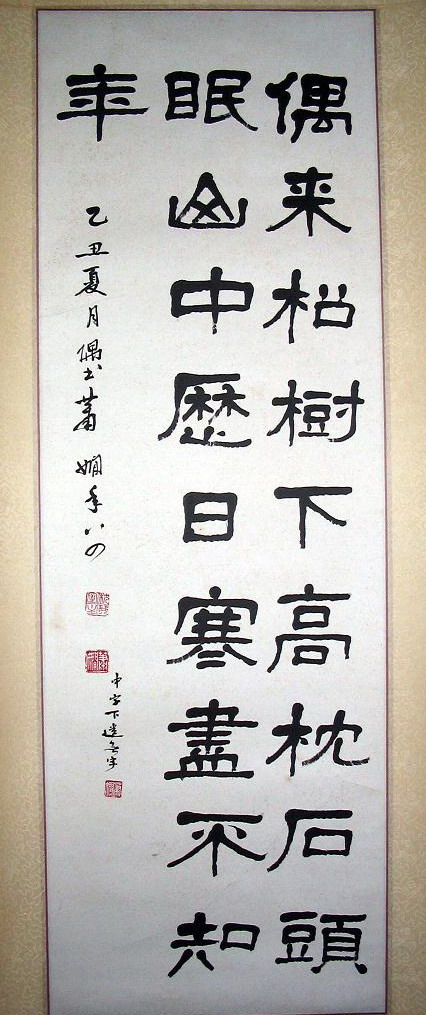 偶来松樹下高枕石頭
眠山中歷日寒盡不知
年
乙丑夏月偶书蕭嫻年八四
中字下遺無字